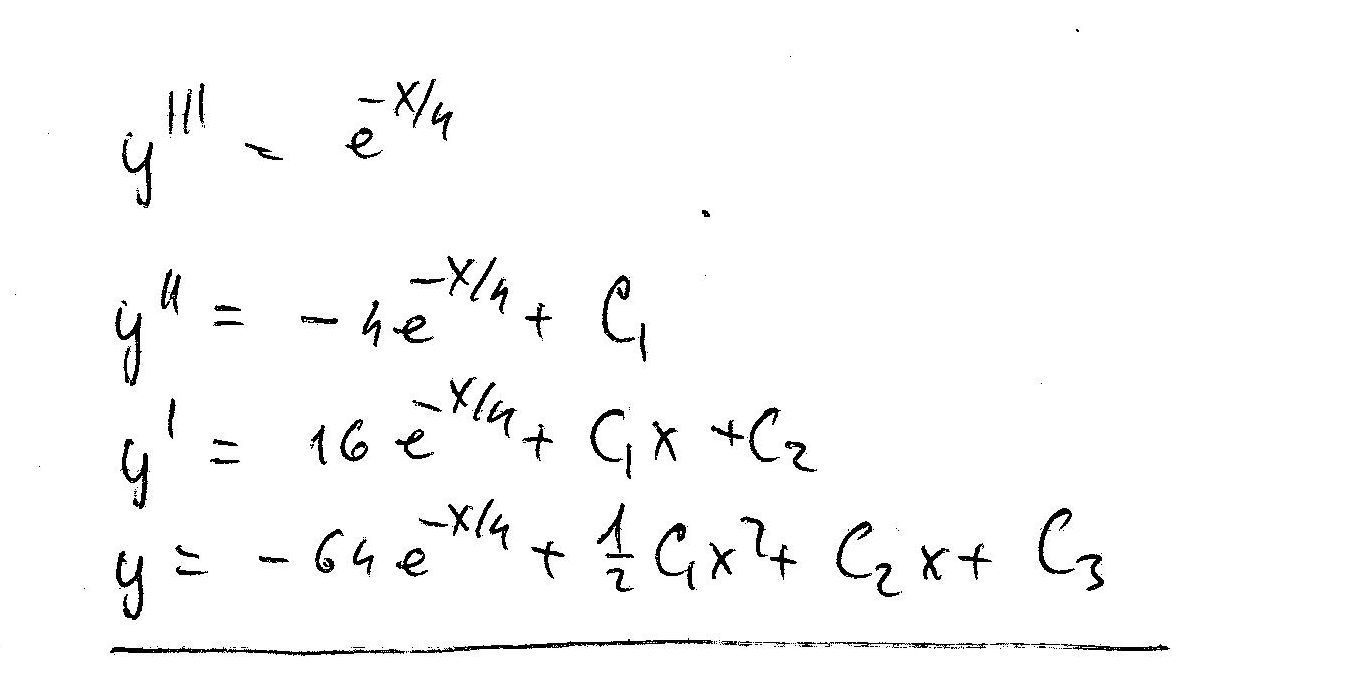 y''' = e^{-x/4}
y'' = -4e^{-x/4} + C₁
y' = 16e^{-x/4} + C₁x + C₂
y = -64e^{-x/4} + ½C₁x² + C₂x + C₃